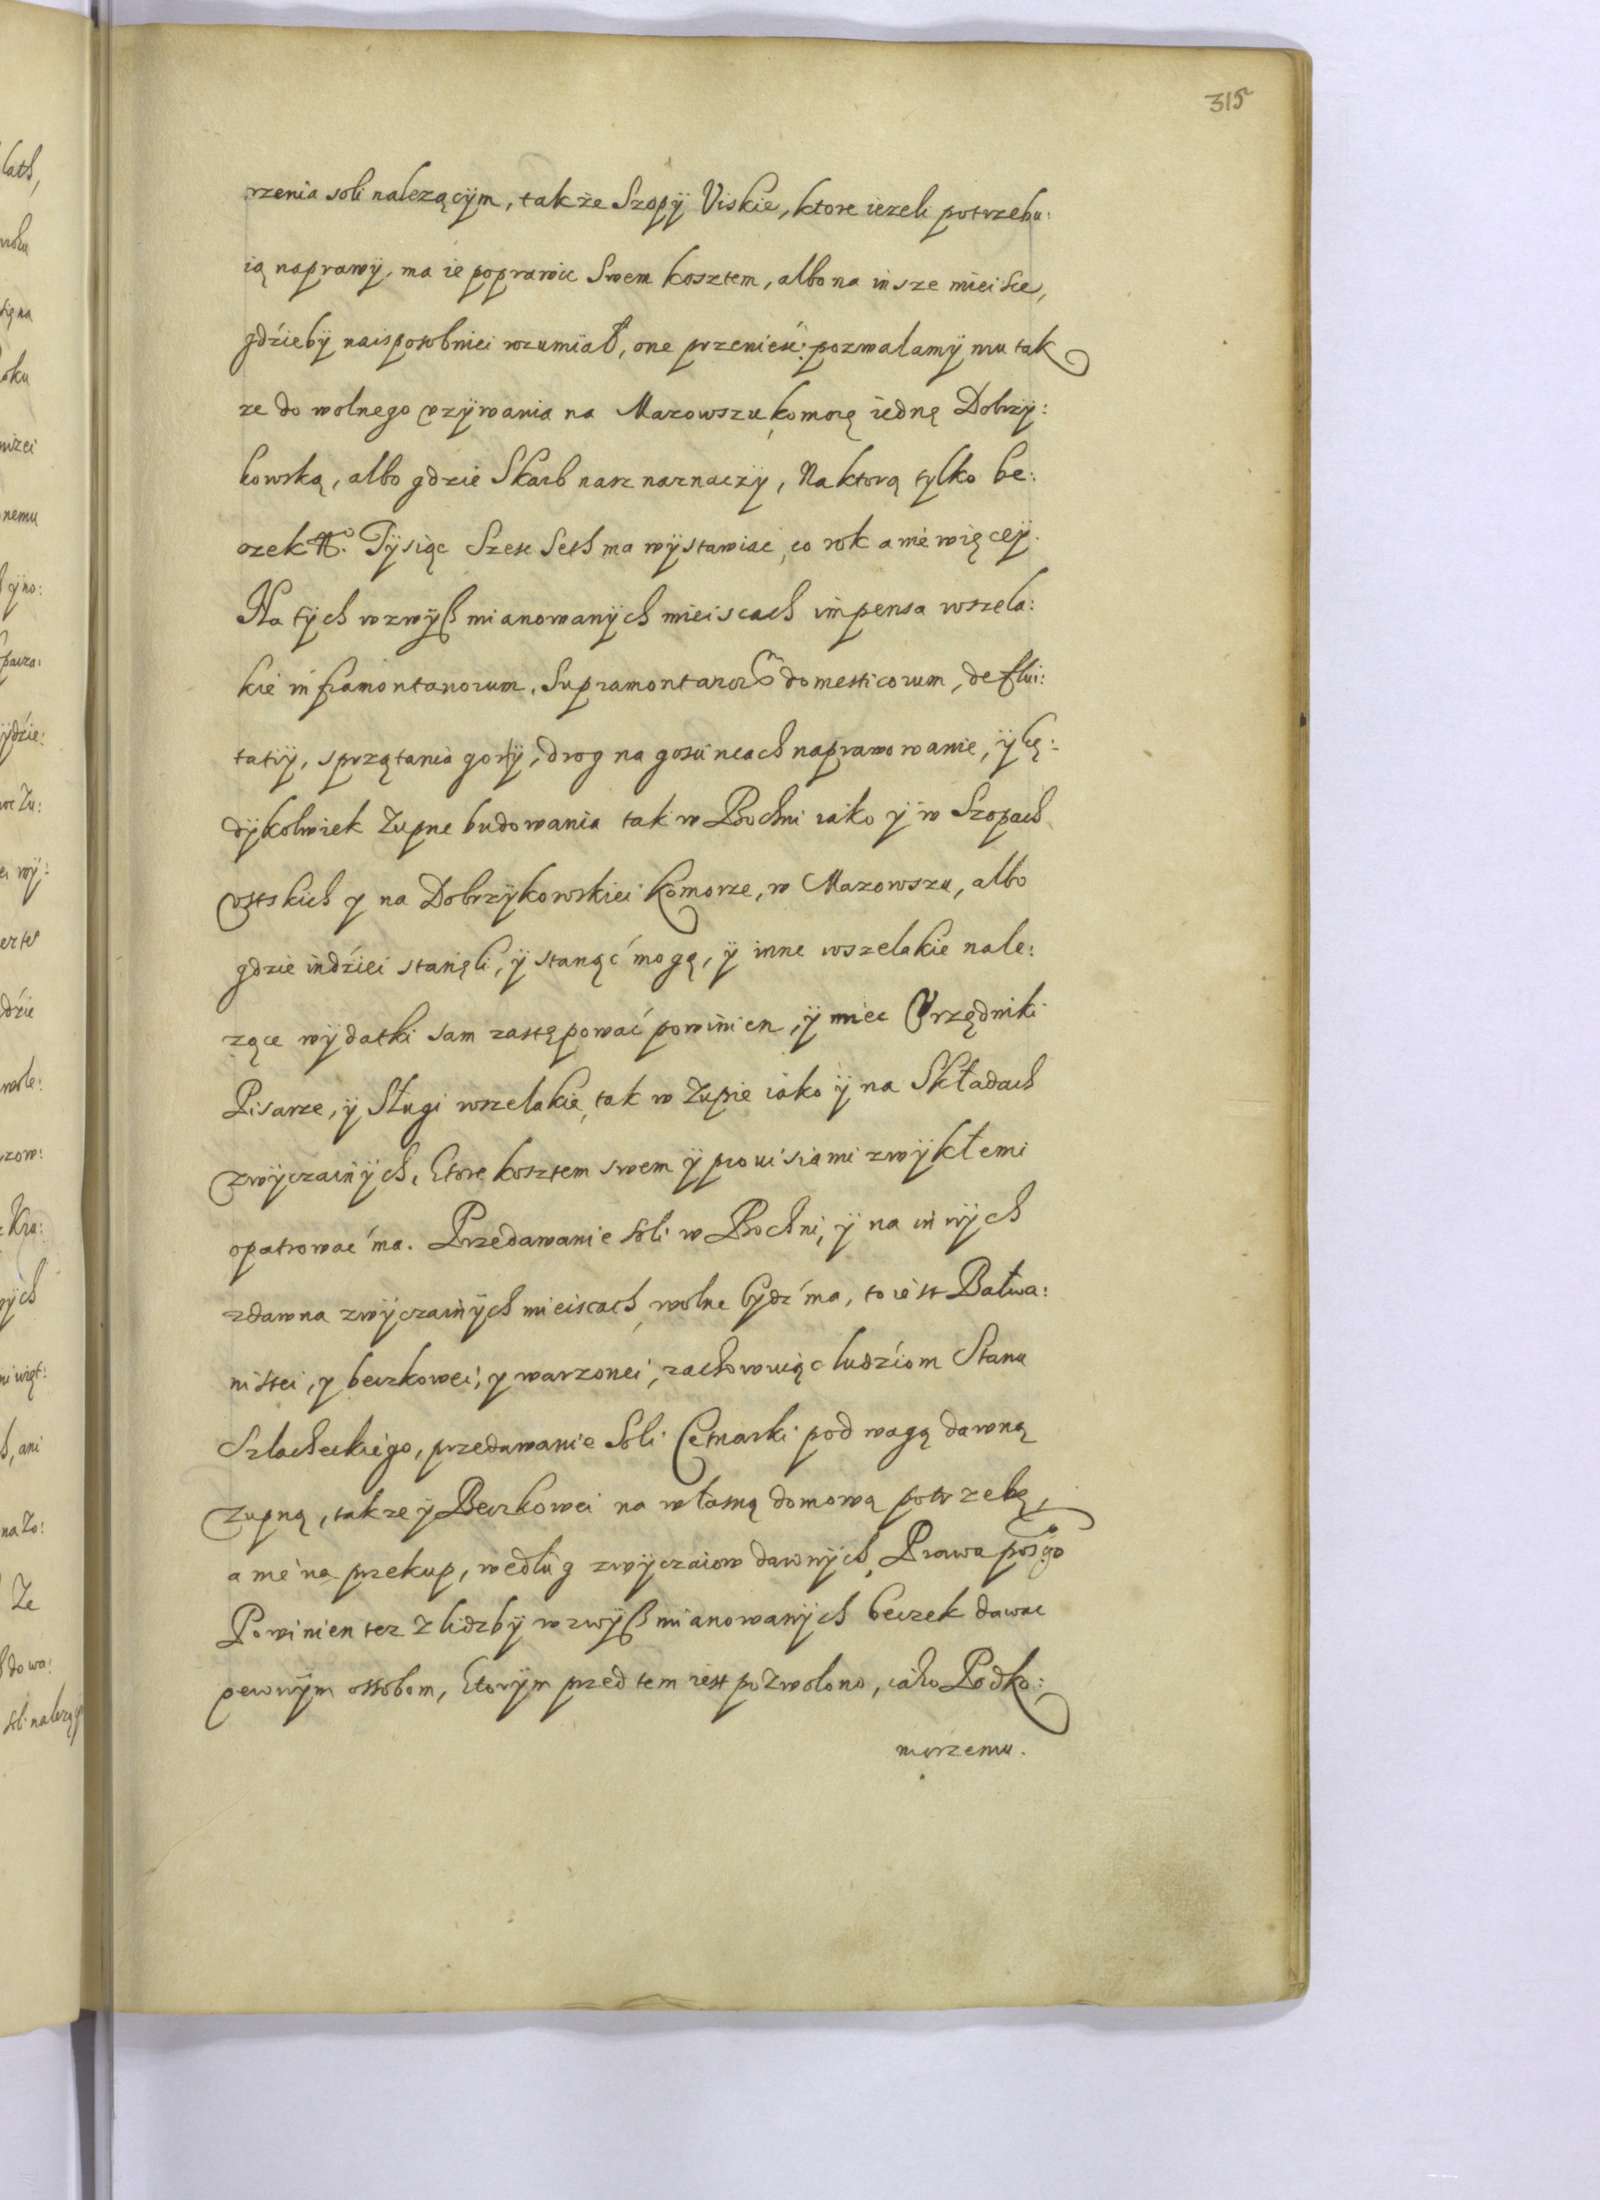 315
rzenia soli nalezącÿm, takze Szopÿ Viskie, ktore iezeli potrzebu:
ią naprawÿ, ma ie poprawic Swem kosztem, albo na insze mieisce,
gdźiebÿ naisposobniei rozumiał, one przenieść: pozwalamÿ mu tak
ze do wolnego vzÿwania na Mazowszu komorę iednę Dobrzÿ:
kowską, albo gdzie Skarb nasz naznaczÿ, Na ktorą tylko be:
czek No. Tÿsiąc Szesc Seth ma wÿstawiac, co rok a nie więceÿ.
Na tÿch wzwÿß mianowanÿch mieiscach impensa wszela:
kie inframontanorum, Supramontanorum domesticorum, deflui:
tatiÿ, sprzątania gorÿ, drog na gosćincach naprawowanie, ÿ kę:
dÿkolwiek Zupne budowania tak w Bochni iako y w Szopach
vstskich y na Dobrzÿkowskiei Komorze, w Mazowszu, albo
gdzie indźiei stanęli, ÿ stanąć mogą, ÿ inne wszelakie nale:
zące wÿdatki sam zastępować powinien, ÿ miec Vrzędniki
Pisarze, ÿ Sługi wszelakie, tak w Zupie iako ÿ na Składach
zwÿczainÿch, ktore kosztem swem ÿ prouisiami zwÿkłemi
opatrować ma. Przedawanie soli w Bochni, ÿ na innÿch
zdawna zwÿczainÿch mieiscach, wolne bydź ma, to iest Bałwa:
nistei, y beczkowei, y warzonei, zachowuiąc ludźiom Stanu
Szlacheckiego, przedawanie Soli Cetnarki pod wagą dawną
zupną, takze ÿ Beczkowei na własną domową potrzebę,
a nie na przekup, według zwÿczaiow dawnÿch, Prawa posgo
Powinien tez z lidzbÿ wzwÿß mianowanÿch beczek dawac
pewnÿm osobom, ktorÿm przed tem iest pozwolono, iako Podko:
morzemu.